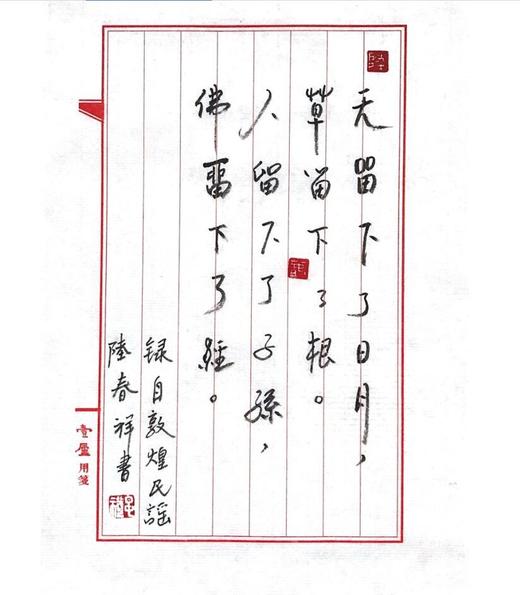 天留下了日月，
草留下了根。
人留下了子孫，
佛留下了經。
録自敦煌民謡
陸春祥書
壹廬用箋